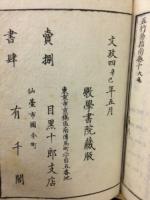 文政四辛巳年五月
數學書院藏版
東京市京橋區南傳馬町二丁目五番地
賣捌 目黒十郎支店
仙臺市國分町
書肆 有千閣